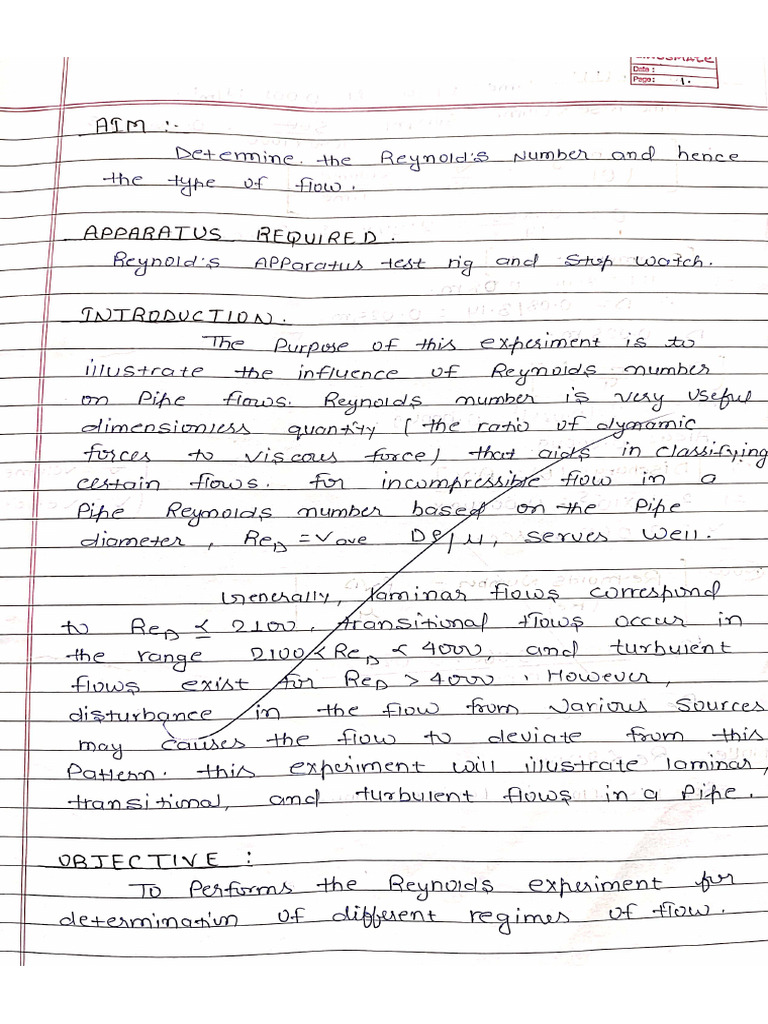 Date :
Page : 1.
AIM :-
Determine the Reynold's Number and hence
the type of flow.
APPARATUS REQUIRED.
Reynold's APParatus test rig and Stop watch.
INTRODUCTION.
The Purpose of this experiment is to
illustrate the influence of Reynolds number
on Pipe flows. Reynolds number is very useful
dimensionless quantity ( the ratio of dynamic
forces to viscous force) that aids in classifying
certain flows. for incompressible flow in a
Pipe Reynolds number based on the Pipe
diameter, ReD = Vave Dρ/μ, serves well.
Generally, laminar flows correspond
to ReD ≤ 2100, transitional flows occur in
the range 2100 < ReD < 4000, and turbulent
flows exist for ReD > 4000. However,
disturbance in the flow from various sources
may causes the flow to deviate from this
Pattern. this experiment will illustrate laminar,
transitional, and turbulent flows in a Pipe.
OBJECTIVE :
To Performs the Reynolds experiment for
determination of different regimes of flow.